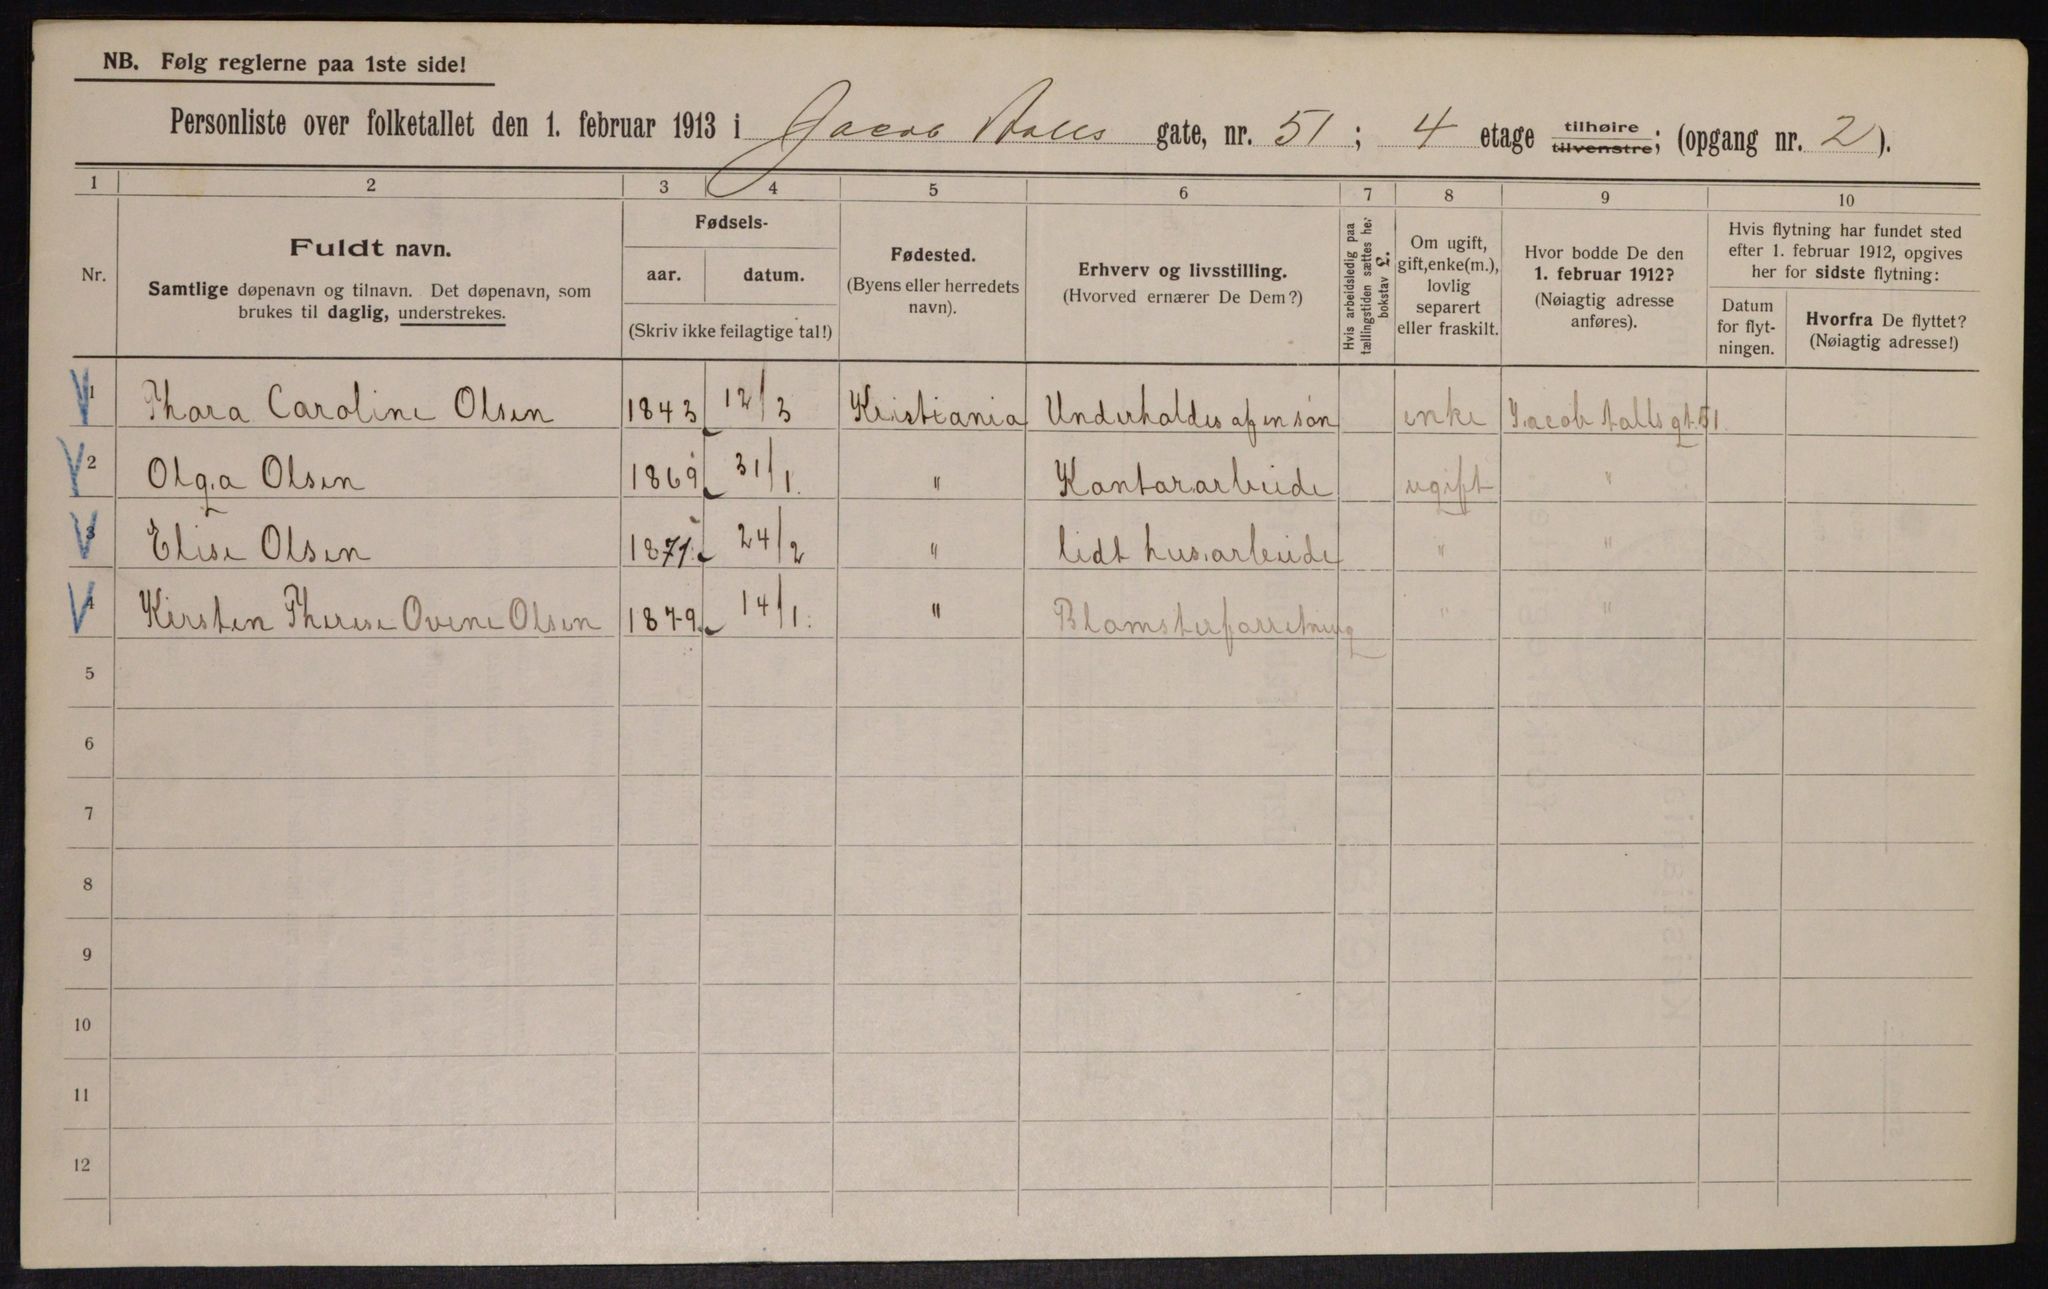 NB. Følg reglerne paa 1ste side!
Personliste over folketallet den 1. februar 1913 i Jacob Aalls gate, nr. 51; 4 etage tilhøire tilvenstre; (opgang nr. 2).
1 2 3 4 5 6 7 8 9 10
Nr.
Fuldt navn.
Samtlige døpenavn og tilnavn. Det døpenavn, som
brukes til daglig, understrekes.
Fødsels-
aar. datum.
(Skriv ikke feilagtige tal!)
Fødested.
(Byens eller herredets
navn).
Erhverv og livsstilling.
(Hvorved ernærer De Dem?)
Hvis arbeidsledig paa
tællingstiden sættes her
bokstav L.
Om ugift,
gift, enke(m.),
lovlig
separert
eller fraskilt.
Hvor bodde De den
1. februar 1912?
(Nøiagtig adresse
anføres).
Hvis flytning har fundet sted
efter 1. februar 1912, opgives
her for sidste flytning:
Datum
for flyt-
ningen.
Hvorfra De flyttet?
(Nøiagtig adresse!)
1 Thora Caroline Olsen 1843 12/3 Kristiania Underholdes af en søn enke Jacob Aallsgt. 51
2 Olga Olsen 1869 31/1. " Kontorarbeide ugift "
3 Elise Olsen 1871. 24/2 " lidt husarbeide " "
4 Kirsten Therese Ovene Olsen 1879. 14/1. " Blomsterforretning " "
5
6
7
8
9
10
11
12